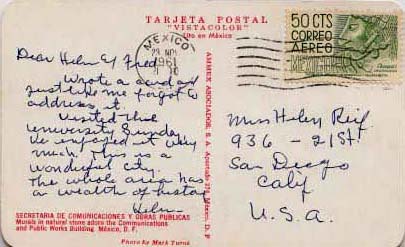 TARJETA POSTAL
"VISTACOLOR"
Hto en México
MEXICO
1961
50 CTS
CORREO
AEREO
MEXICO
Dear Helen & Fred
Wrote a card and
just like me forgot to
address it
Visited this
University Sunday
we enjoyed it very
much. This is a
wonderful city.
The whole area has
a wealth of history
Helen
Miss Helen Reif
936 - 21 St.
San Diego
Calif
U.S.A.
AMMEX ASOCIADOS, S. A. Apartado México, D. F.
SECRETARIA DE COMUNICACIONES Y OBRAS PUBLICAS
Murals in natural stone adorn the Communications
and Public Works Building. México, D. F.
Photo by Mark Turok